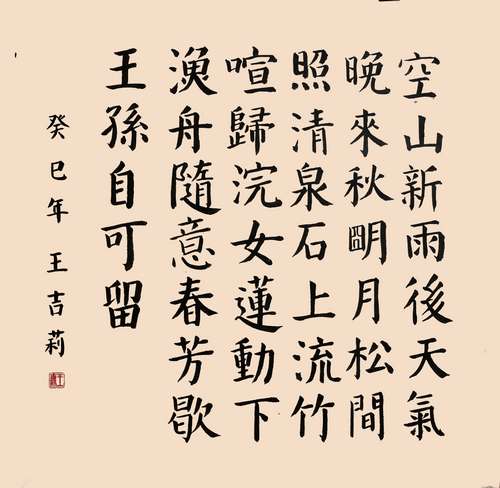 空山新雨後天氣
晚來秋朙月松間
照清泉石上流竹
喧歸浣女蓮動下
漁舟隨意春芳歇
王孫自可留
癸巳年王吉莉